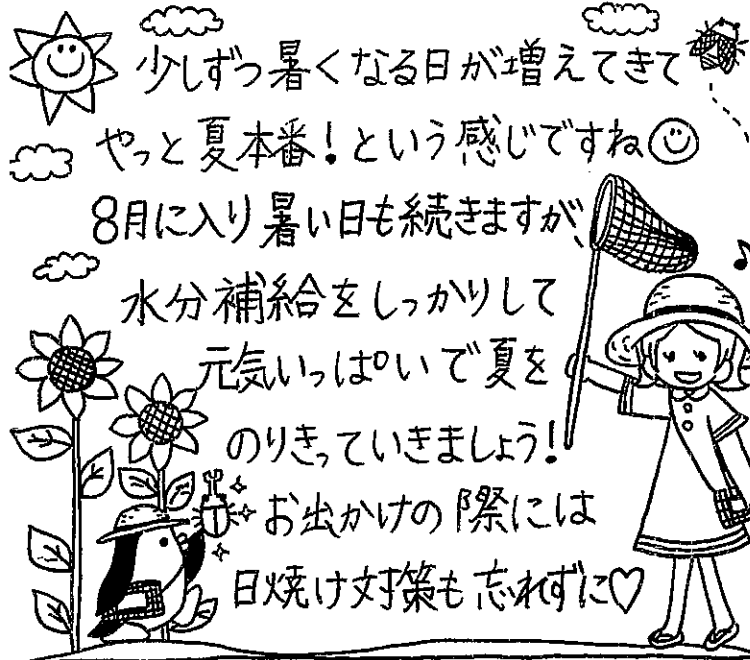 少しずつ暑くなる日が増えてきて
やっと夏本番！という感じですね
8月に入り暑い日も続きますが、
水分補給をしっかりして
元気いっぱいで夏を
のりきっていきましょう！
お出かけの際には
日焼け対策も忘れずに♡